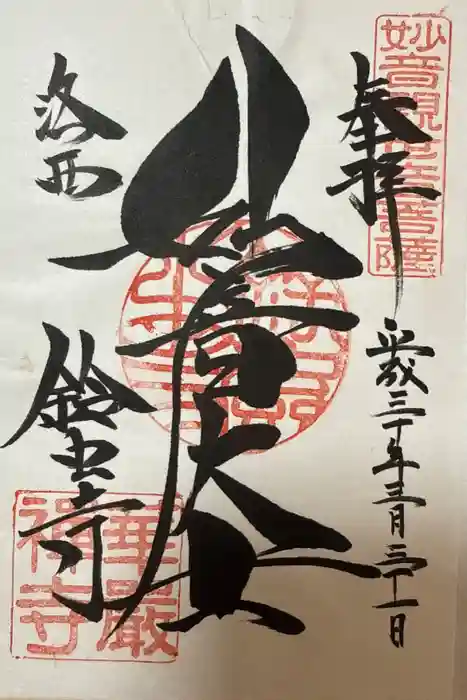 奉拝
妙音観世音菩薩
平成三十年三月三十一日
妙音大士
洛西
鈴虫寺
華厳
禅寺